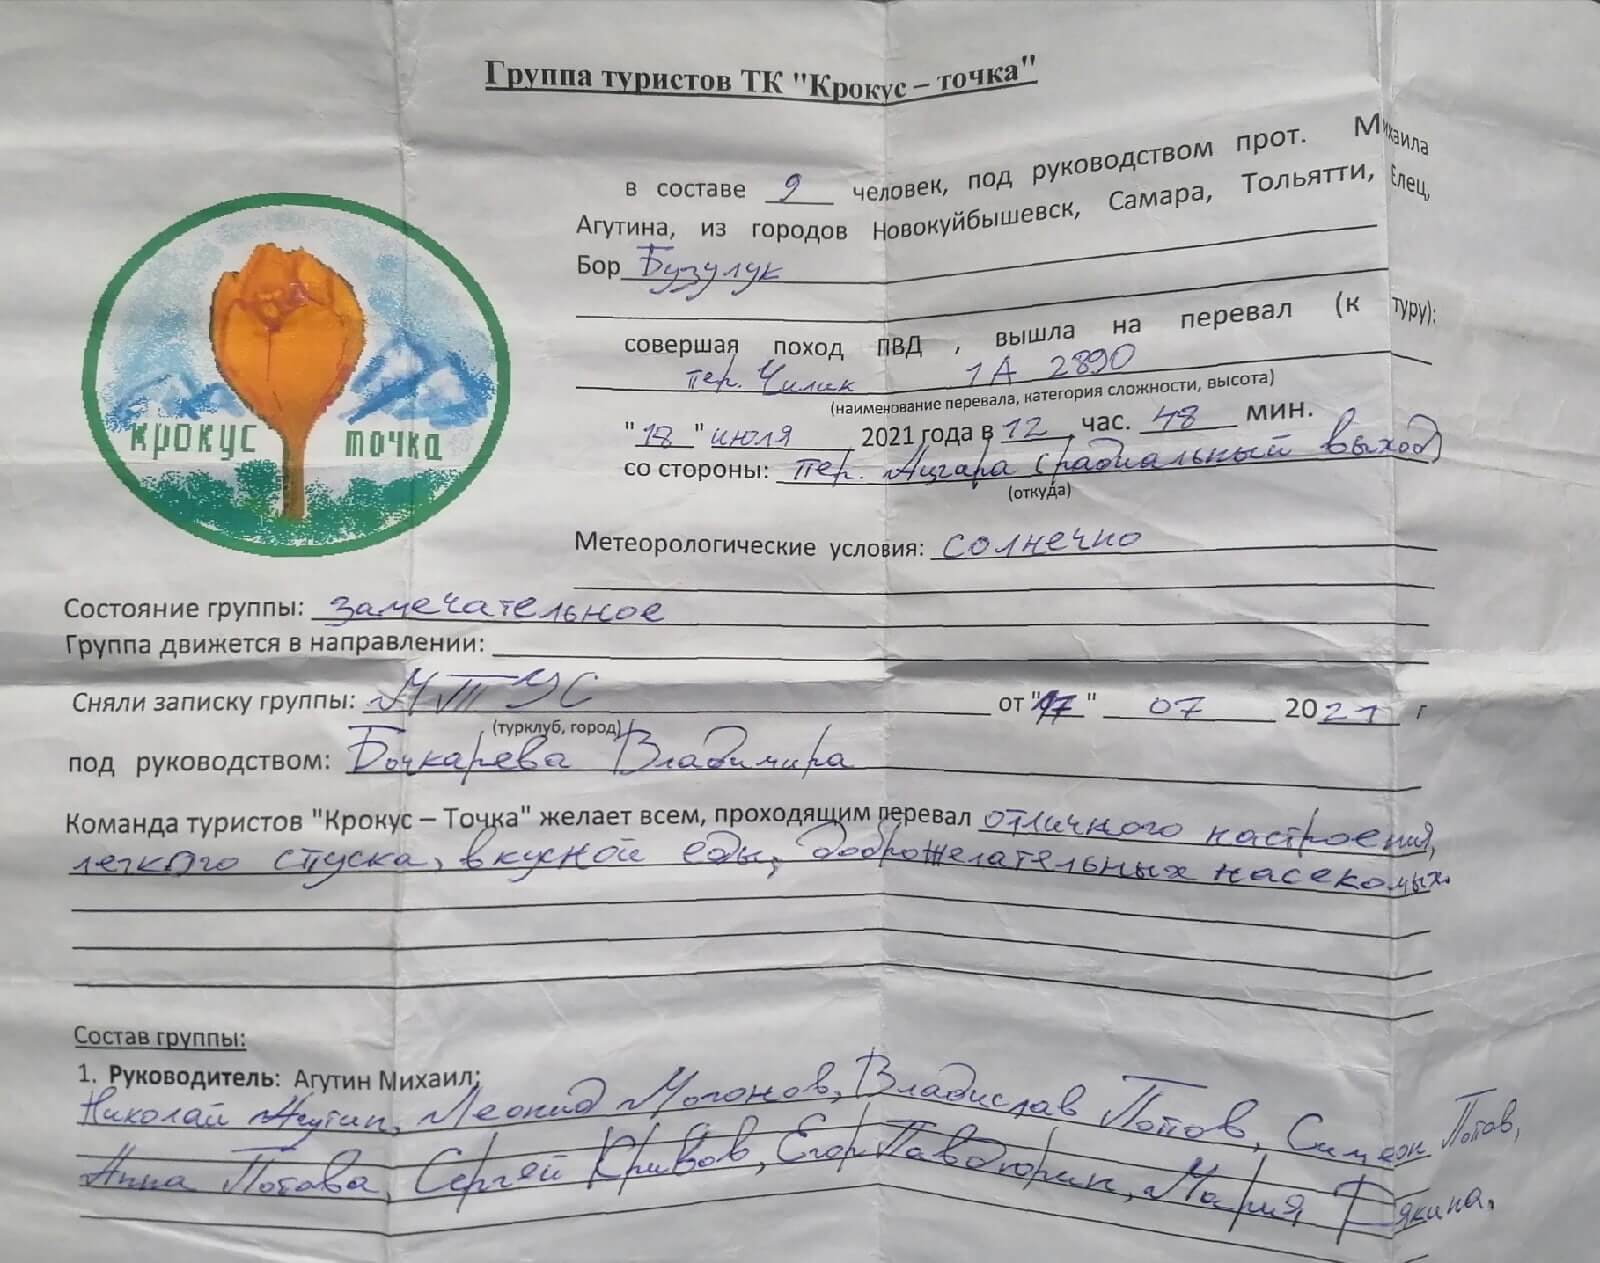 Группа туристов ТК "Крокус – точка"
в составе 9 человек, под руководством прот. Михаила
Агутина, из городов Новокуйбышевск, Самара, Тольятти, Елец,
Бор Бузулук
совершая поход ПВД , вышла на перевал (к туру):
пер. Чилик 1А 2890
(наименование перевала, категория сложности, высота)
"18" июля 2021 года в 12 час. 48 мин.
со стороны: пер. Ацгара (радиальный выход)
(откуда)
крокус точка
Метеорологические условия: солнечно
Состояние группы: замечательное
Группа движется в направлении:
Сняли записку группы: от "17" 07 2021 г
(турклуб, город)
под руководством: Бочкарева Владимира
Команда туристов "Крокус – Точка" желает всем, проходящим перевал отличного настроения,
легкого спуска, вкусной еды, доброжелательных насекомых.
Состав группы:
1. Руководитель: Агутин Михаил;
Николай Агутин, Леонид Мотонов, Владислав Попов, Симеон Попов,
Анна Попова, Сергей Кривов, Егор Павдюрин, Мария